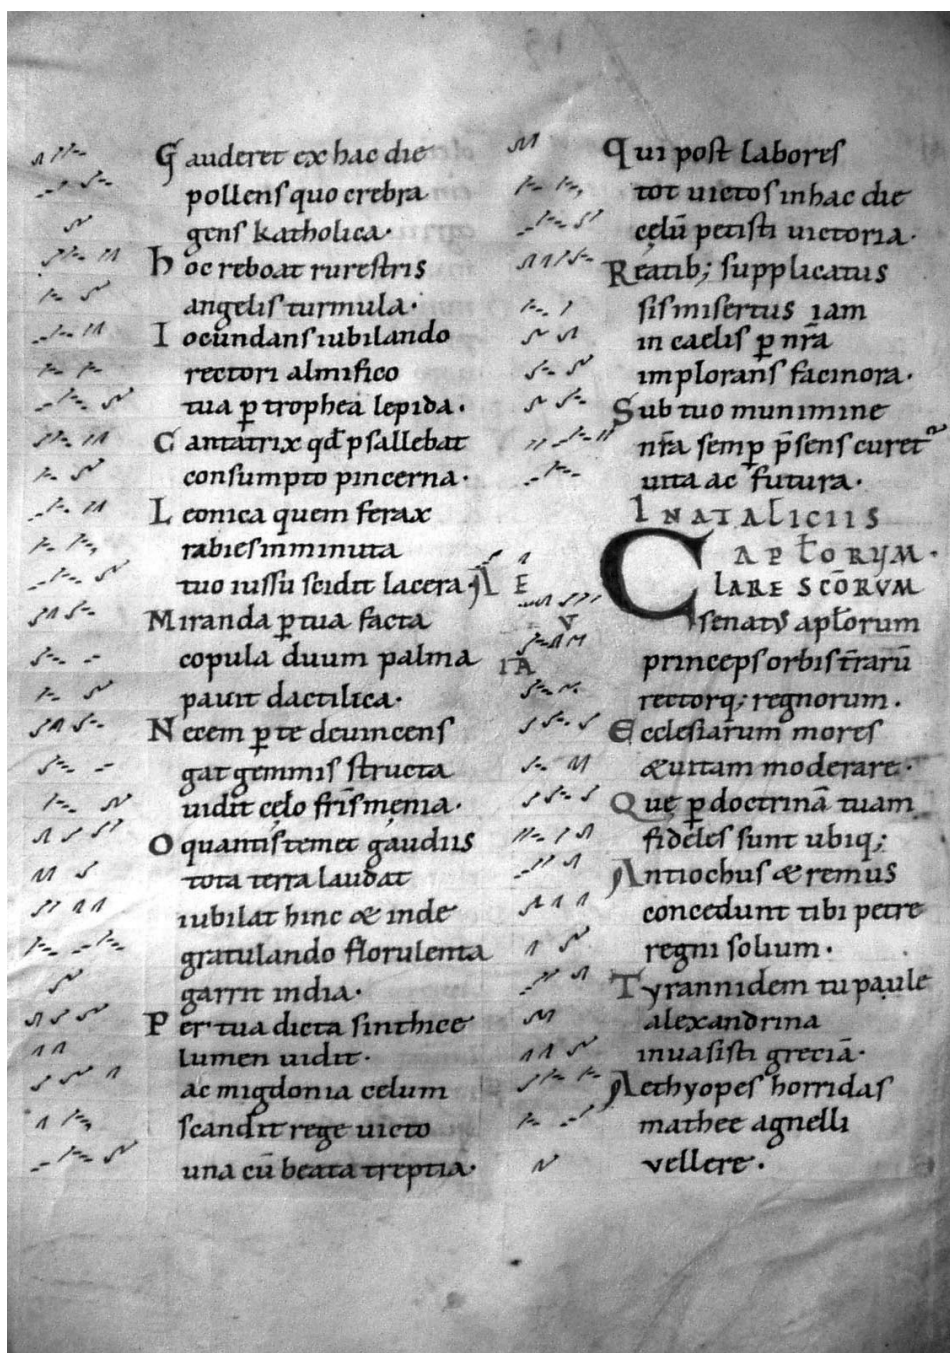 Gauderet ex hac die
pollens quo crebra
gens katholica.
Hoc reboat rurestris
angelis turmula.
Iocundans iubilando
rectori almifico
tua ꝑ trophea lepida.
Cantatrix qd̄ psallebat
consumpto pincerna.
Leonica quem ferax
rabies inminuta
tuo iussu scidit lacera.
Miranda ꝑ tua facta
copula duum palma
pauit dactilica.
Necem ꝑ te deuincens
gat gemmis structa
uidit cęlo fr̄ismenia.
O quantis temet gaudiis
tota terra laudat
iubilat hinc & inde
gratulando florulenta
garrit india.
Per tua dicta sinthice
lumen uidit.
ac migdonia celum
scandit rege uicto
una cū beata treptia.
Qui post labores
tot uictos in hac die
cęlū petisti uictoria.
Reatib; supplicatus
sis misertus iam
in caelis ꝑ nr̄a
implorans facinora.
Sub tuo munimine
nr̄a semꝑ p̄sens curet
uita ac futura.
IN ATALICIIS
APŁORUM.
AE
CLARE SCŌRUM
V
senatꝰ apłorum
IA
princeps orbis t̄rarū
rectorq; regnorum.
Ecclesiarum mores
& uitam moderare.
Quę ꝑ doctrinā tuam
fideles sunt ubiq;
Antiochus & remus
concedunt tibi petre
regni solium.
Tyrannidem tu paule
alexandrina
inuasisti greciā.
Aethyopes horridas
mathee agnelli
vellere.